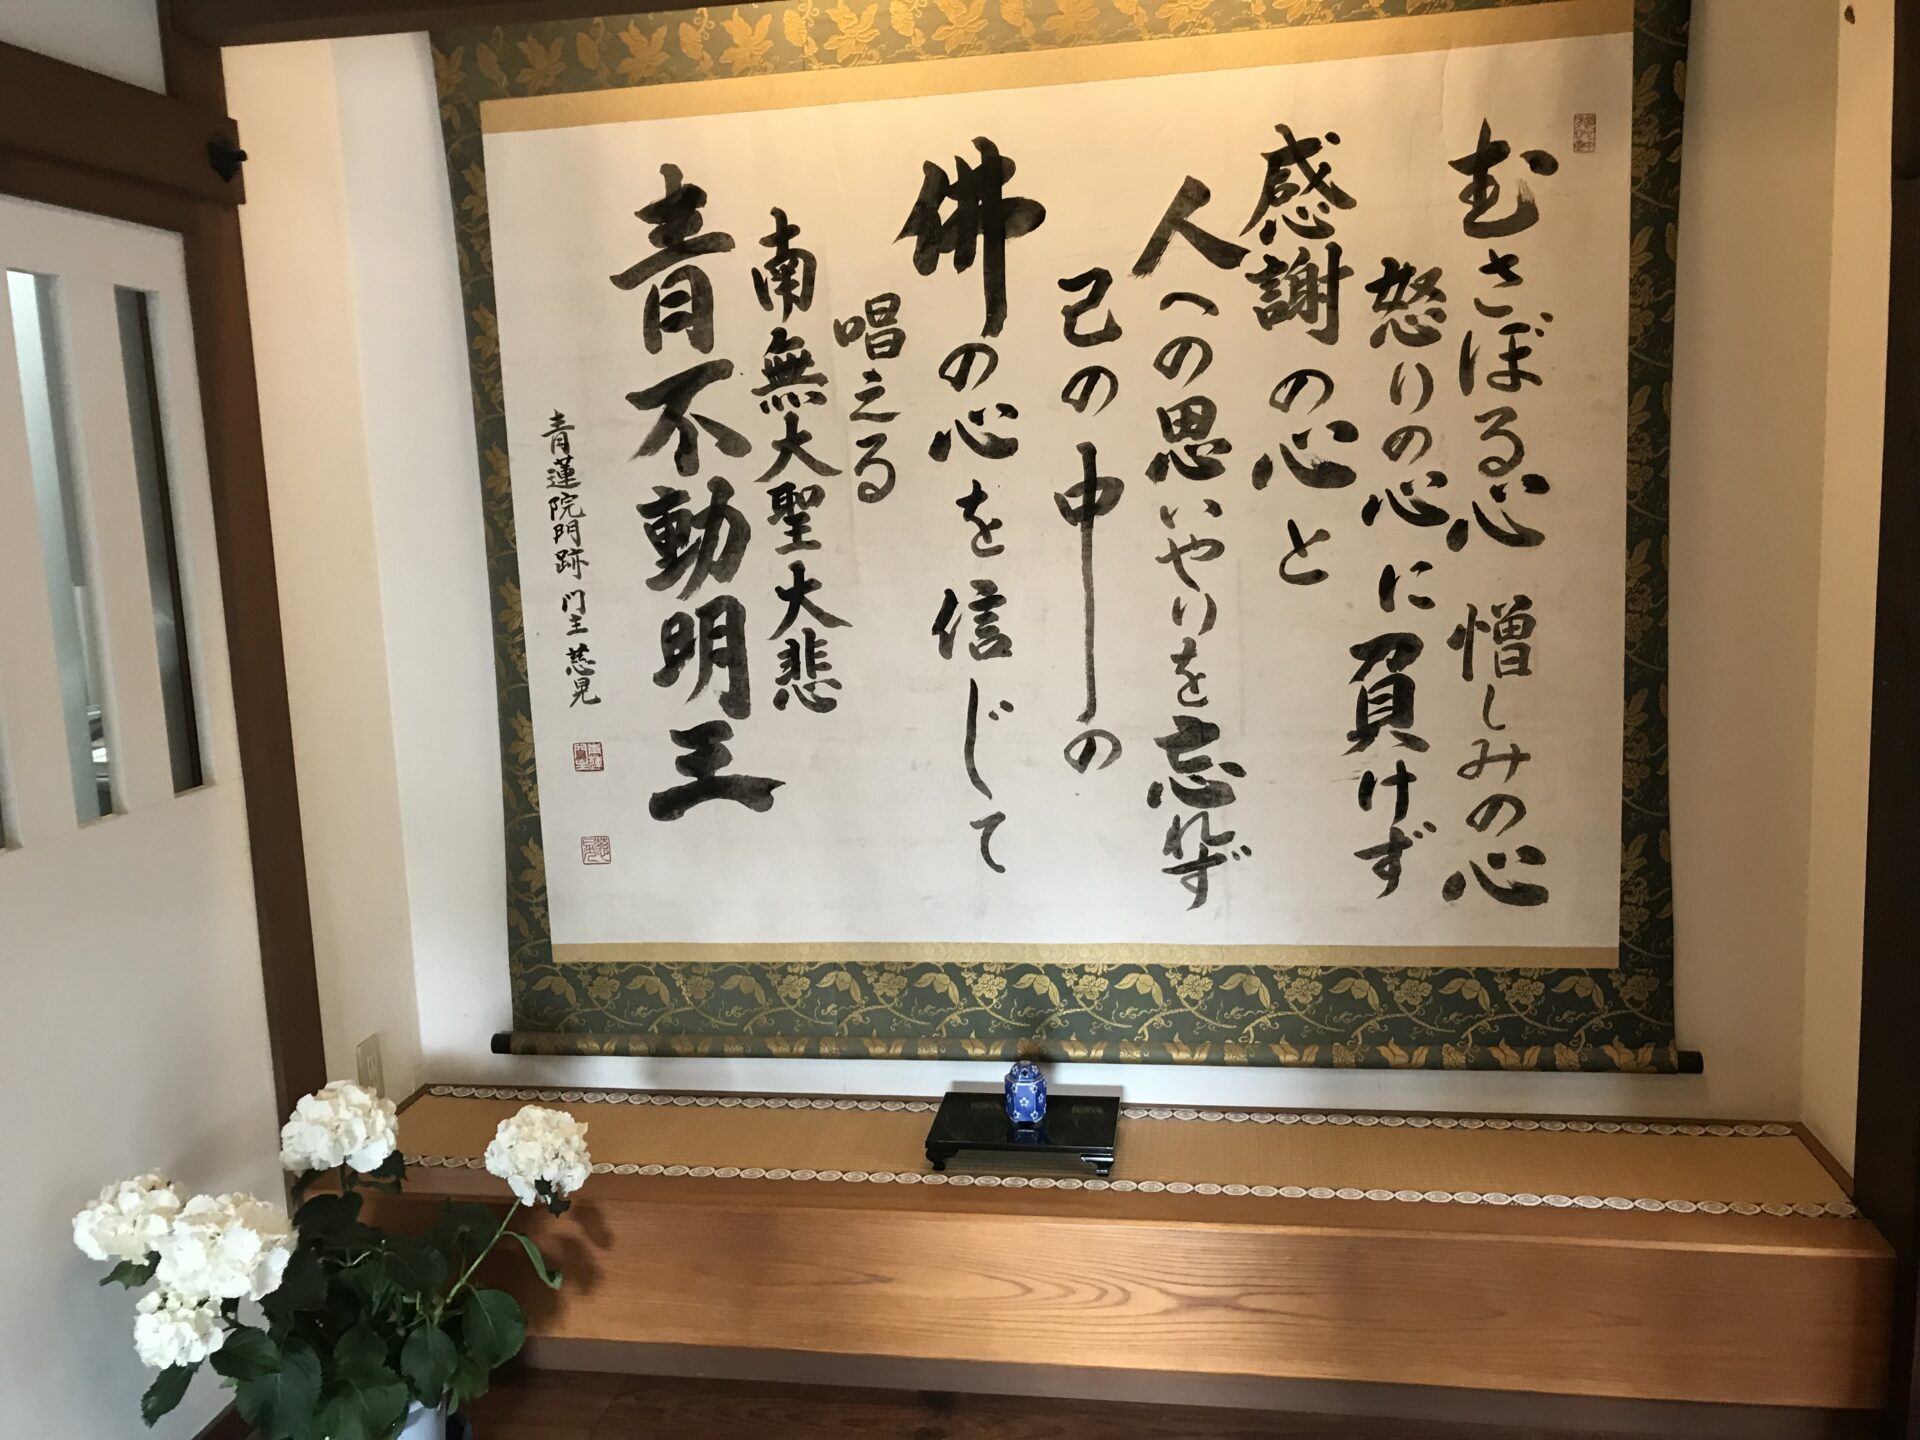 むさぼる心 憎しみの心
怒りの心に負けず
感謝の心と
人への思いやりを忘れず
己の中の
佛の心を信じて
唱える
南無大聖大悲
青不動明王
青蓮院門跡 门主 慈晃